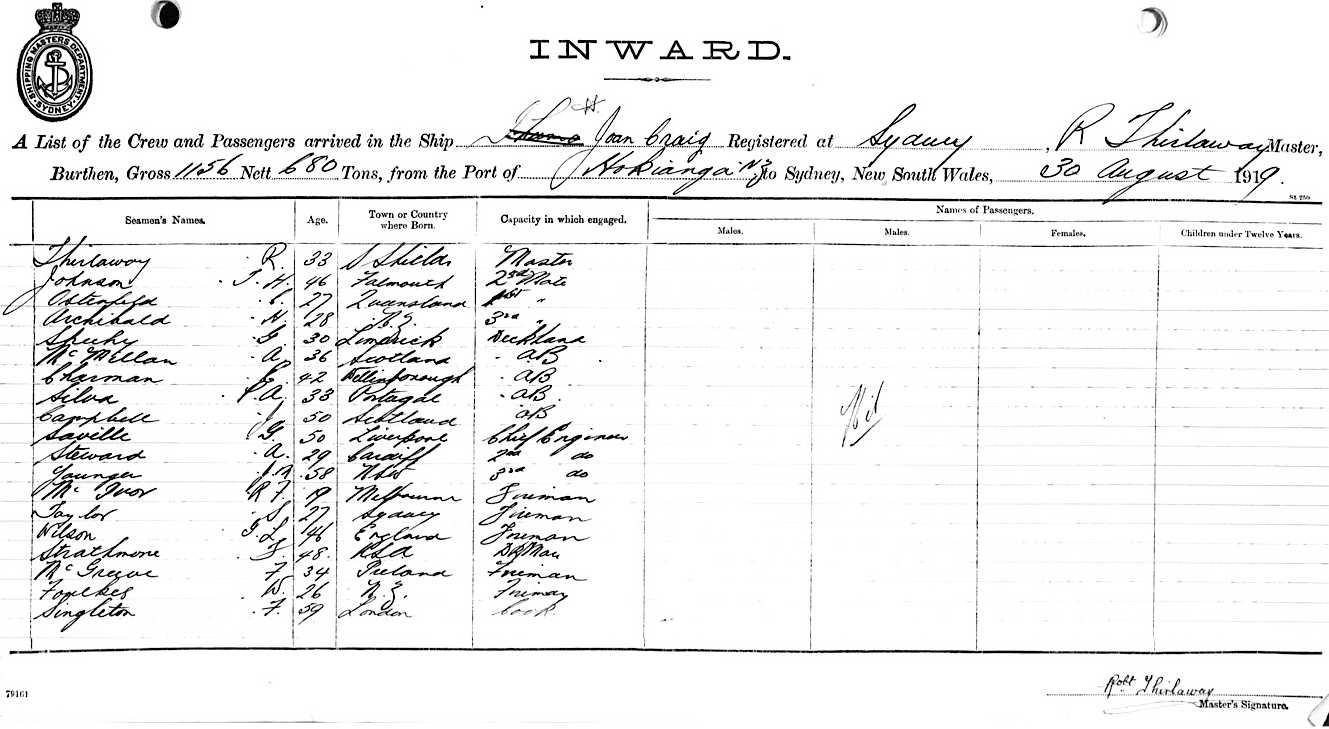 SHIPPING MASTERS DEPARTMENT
SYDNEY
INWARD.
A List of the Crew and Passengers arrived in the Ship Joan Craig Registered at Sydney, R Thirlaway Master,
Burthen, Gross 1156 Nett 680 Tons, from the Port of Hokianga NZ to Sydney, New South Wales, 30 August 1919.
Seamen's Names. Age. Town or Country where Born. Capacity in which engaged. Names of Passengers.
Males. Males. Females. Children under Twelve Years.
Thirlaway R. 33 S Shields Master
Johnson T. H. 46 Falmouth 2nd Mate
Ostenfeld C. 27 Queensland 1st "
Archibald H. 28 N.Z. 3rd "
G. 30 Limerick
Mc Mellan A. 36 Scotland AB
Charman 42 Wellinborough AB
Silva P. A. 33 Portugal AB
Campbell J 50 Scotland AB
Saville G. 50 Liverpool Chief Engineer
Steward A. 29 Cardiff 2nd do
Younger J. R. 58 3rd do
Mc Ivor R F. 19 Melbourne Fireman
Taylor S. 27 Sydney Fireman
Wilson L. 46 England Fireman
Strathmore F. 48. USA
Mc Greeve F. 34 Ireland Fireman
Foulkes W. 26 N.Z. Fireman
Singleton F. 59 London Cook
Nil
79161
Robt Thirlaway
Master's Signature.